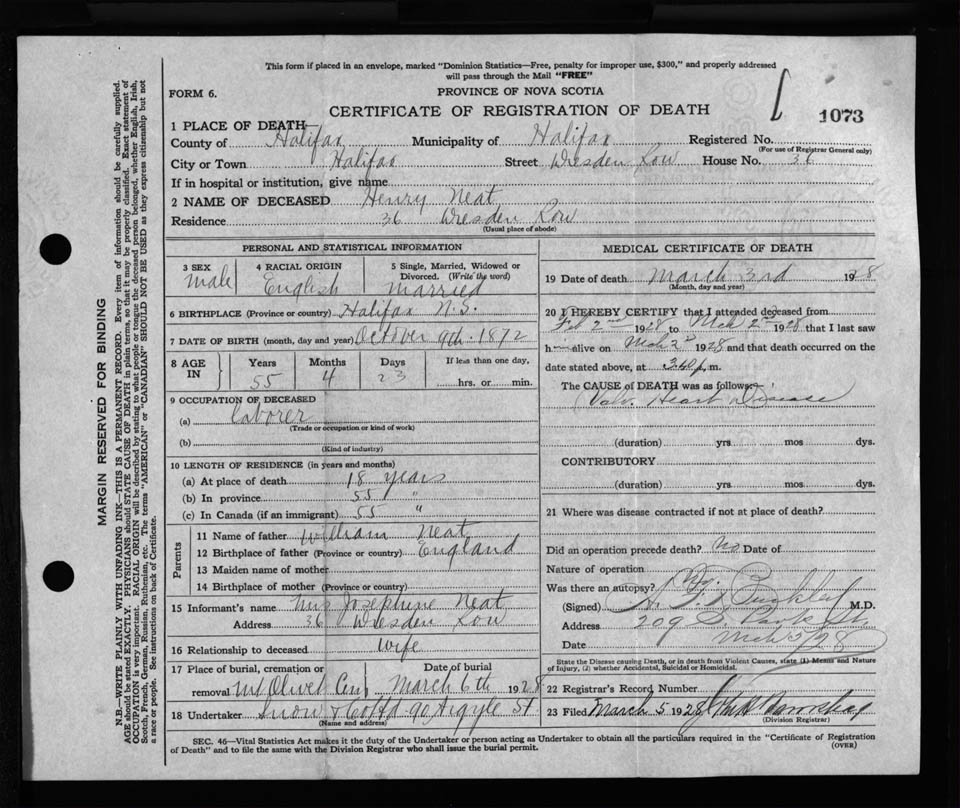 This form if placed in an envelope, marked "Dominion Statistics—Free, penalty for improper use, $300," and properly addressed
will pass through the Mail "FREE"
FORM 6.
PROVINCE OF NOVA SCOTIA
CERTIFICATE OF REGISTRATION OF DEATH
1073
1 PLACE OF DEATH
County of Halifax Municipality of Halifax Registered No.
(For use of Registrar General only)
City or Town Halifax Street Dresden Row House No. 36
If in hospital or institution, give name
2 NAME OF DECEASED Henry Neat
Residence 36 Dresden Row
(Usual place of abode)
PERSONAL AND STATISTICAL INFORMATION
3 SEX Male
4 RACIAL ORIGIN English
5 Single, Married, Widowed or Divorced. (Write the word) Married
6 BIRTHPLACE (Province or country) Halifax N.S.
7 DATE OF BIRTH (month, day and year) October 9th. 1872
8 AGE IN Years 55 Months 4 Days 23 If less than one day, hrs. or min.
9 OCCUPATION OF DECEASED
(a) Laborer
(Trade or occupation or kind of work)
(b)
(Kind of industry)
10 LENGTH OF RESIDENCE (in years and months)
(a) At place of death 18 years
(b) In province 55 "
(c) In Canada (if an immigrant) 55 "
Parents
11 Name of father William Neat
12 Birthplace of father (Province or country) England
13 Maiden name of mother
14 Birthplace of mother (Province or country)
15 Informant's name Mrs Josephine Neat
Address 36 Dresden Row
16 Relationship to deceased Wife
17 Place of burial, cremation or removal Mt Olivet Cem Date of burial March 6th 1928
18 Undertaker Snow & Co Ltd 90 Argyle St.
(Name and address)
MEDICAL CERTIFICATE OF DEATH
19 Date of death March 3rd 1928
(Month, day and year)
20 I HEREBY CERTIFY that I attended deceased from
Feb 2nd 1928 to Mch 2nd 1928 that I last saw
h alive on Mch 2nd 1928 and that death occurred on the
date stated above, at 3.40 p. m.
The CAUSE of DEATH was as follows:
Valv. Heart Disease
(duration) yrs mos dys.
CONTRIBUTORY
(duration) yrs mos dys.
21 Where was disease contracted if not at place of death?
Did an operation precede death? No Date of
Nature of operation
Was there an autopsy? No.
(Signed) M.D.
Address 209 S. Park St.
Date Mch 5/28
State the Disease causing Death, or in death from Violent Causes, state (1) Means and Nature
of Injury, (2) whether Accidental, Suicidal or Homicidal.
22 Registrar's Record Number
23 Filed March 5 1928
(Division Registrar)
SEC. 46—Vital Statistics Act makes it the duty of the Undertaker or person acting as Undertaker to obtain all the particulars required in the "Certificate of Registration
of Death" and to file the same with the Division Registrar who shall issue the burial permit.
(OVER)
MARGIN RESERVED FOR BINDING
N.B.—WRITE PLAINLY WITH UNFADING INK—THIS IS A PERMANENT RECORD. Every item of information should be carefully supplied.
AGE should be stated EXACTLY. PHYSICIANS should STATE CAUSE OF DEATH in plain terms, so that it may be properly classified. Exact statement of
OCCUPATION is very important. RACIAL ORIGIN will be described by stating to what people or tongue the deceased person belonged, whether English, Irish,
Scotch, French, German, Russian, Ruthenian, etc. The terms "AMERICAN" or "CANADIAN" SHOULD NOT BE USED as they express citizenship but not
a race or people. See instructions on back of Certificate.